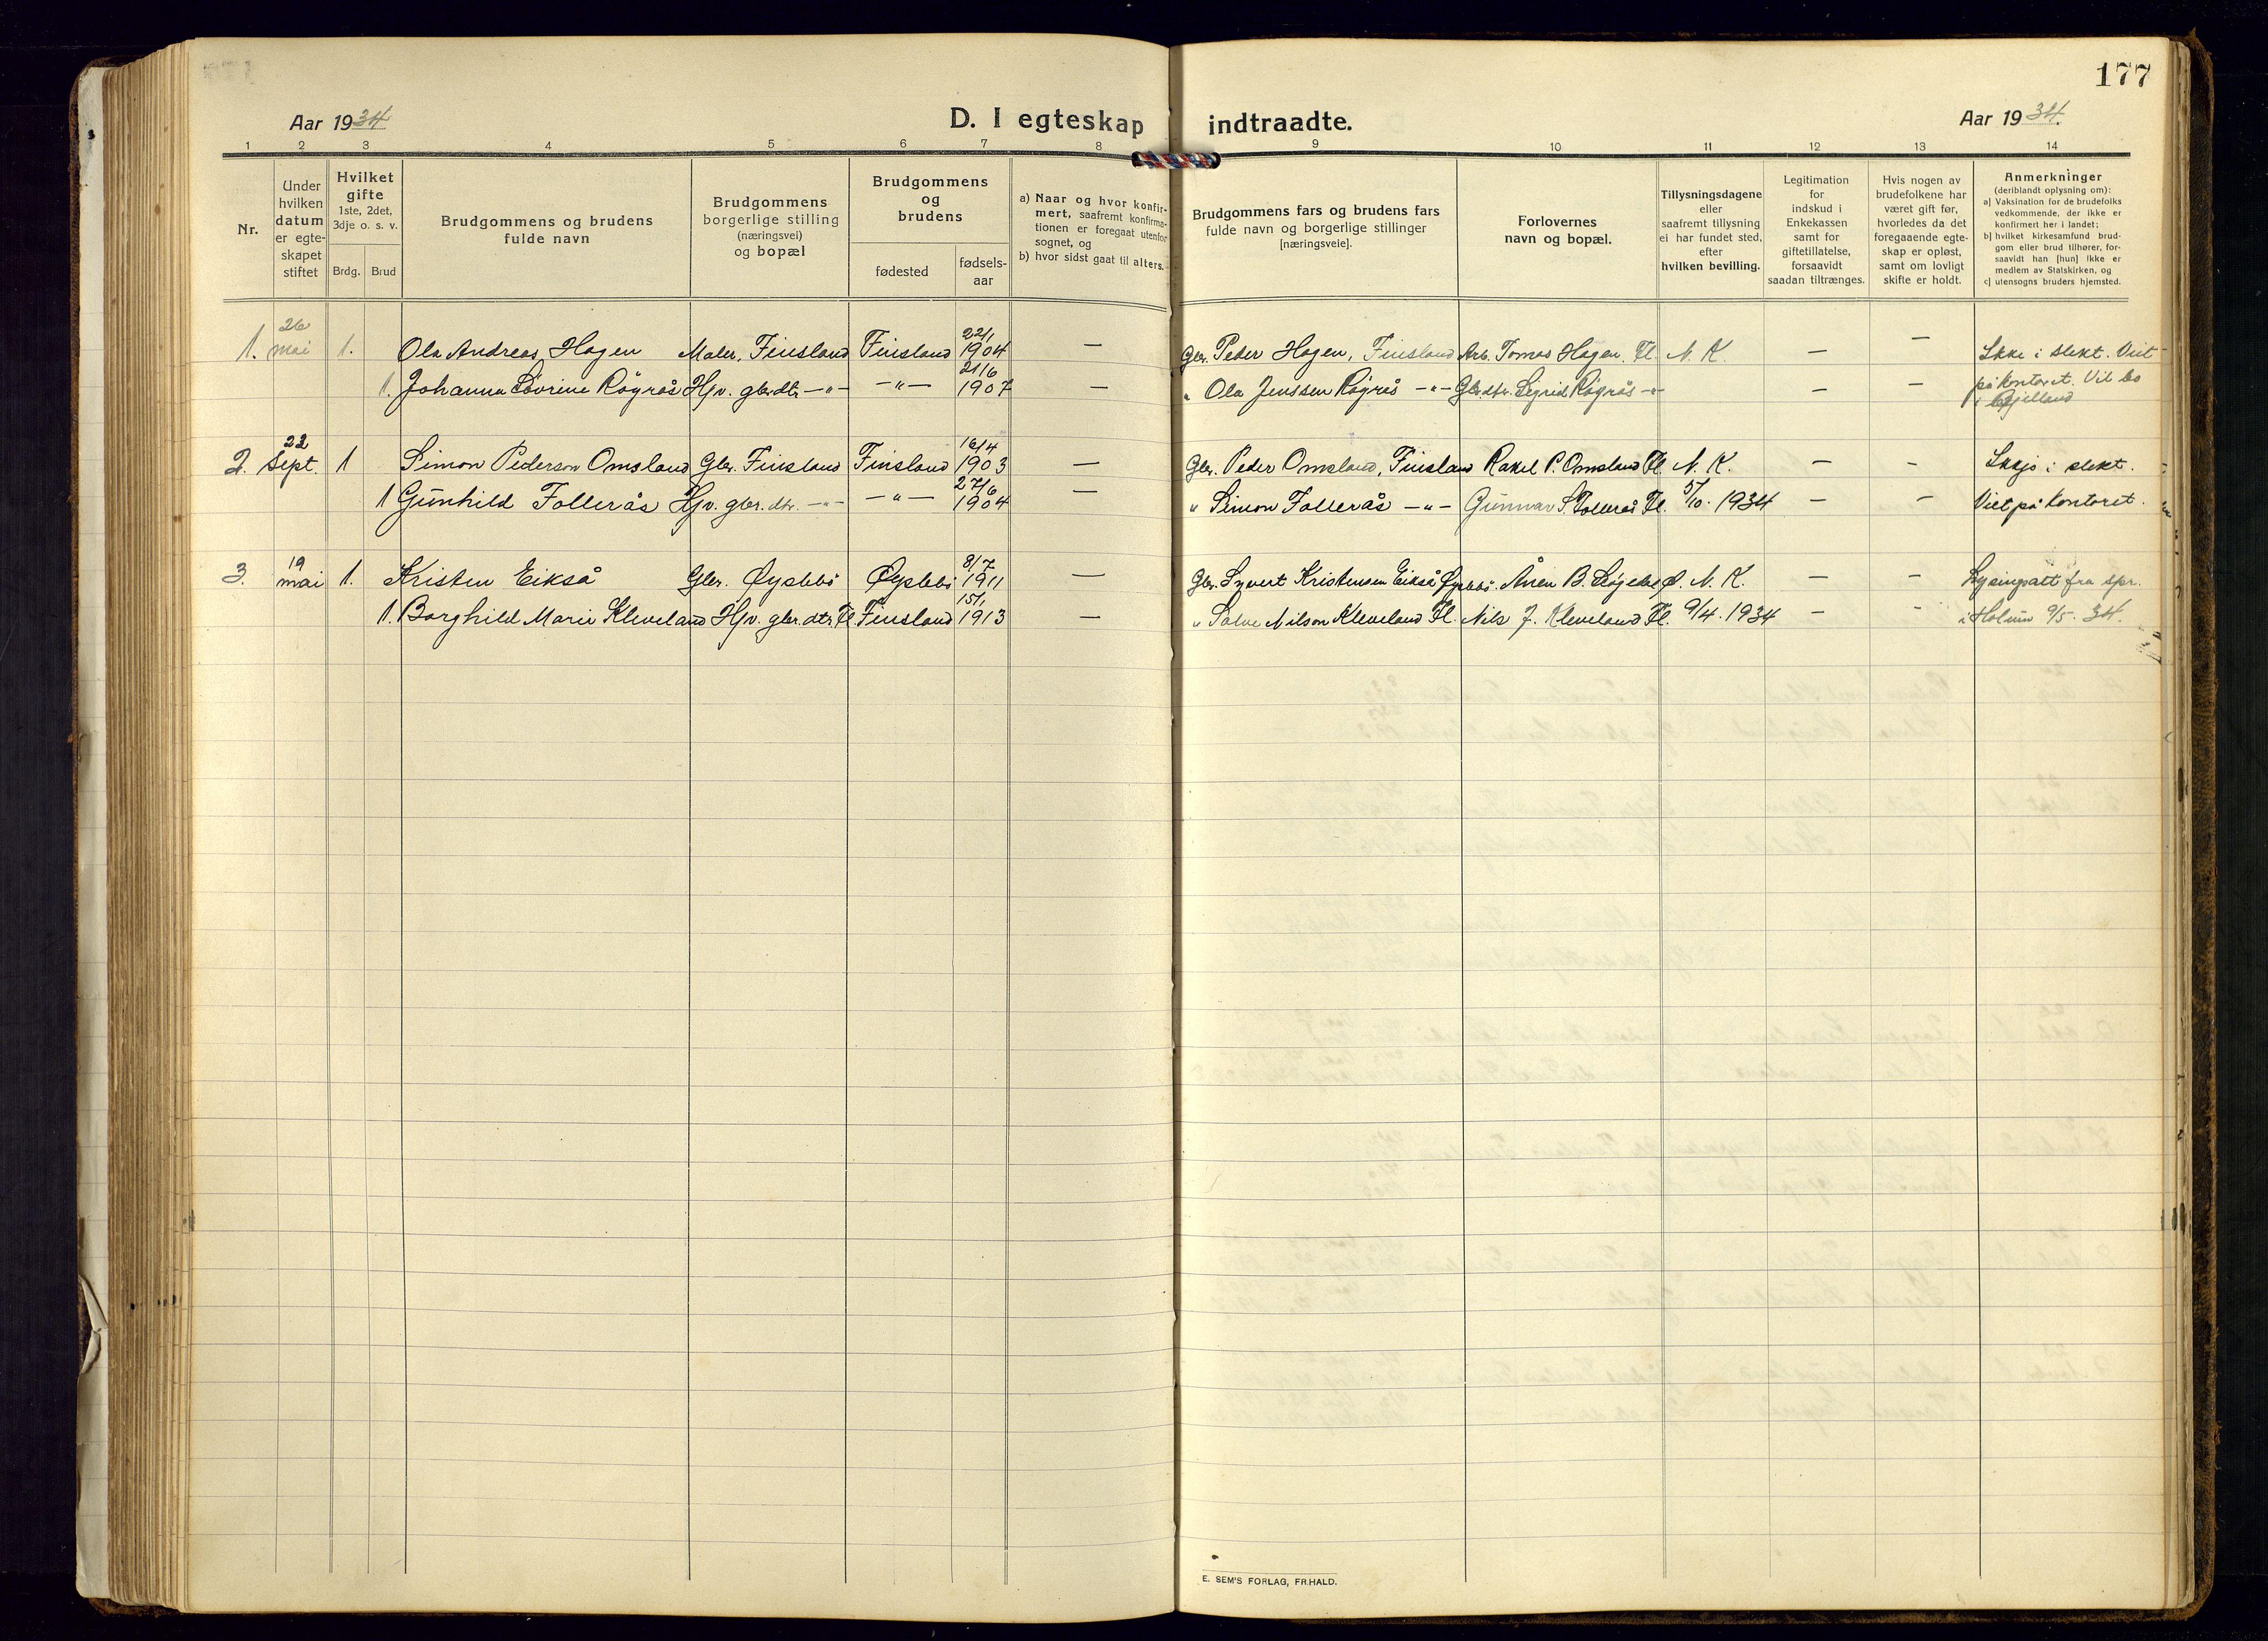 177
Aar 1934
D. I egteskap indtraadte.
Aar 1934.
1 2 3 4 5 6 7 8 9 10 11 12 13 14
Nr.
Under hvilken datum er egte-skapet stiftet
Hvilket gifte 1ste, 2det, 3dje o. s. v.
Brdg. Brud
Brudgommens og brudens fulde navn
Brudgommens borgerlige stilling (næringsvei) og bopæl
Brudgommens og brudens
fødested
fødsels-aar
a) Naar og hvor konfir-mert, saafremt konfirma-tionen er foregaat utenfor sognet, og
b) hvor sidst gaat til alters.
Brudgommens fars og brudens fars fulde navn og borgerlige stillinger [næringsveie].
Forlovernes navn og bopæl.
Tillysningsdagene eller saafremt tillysning ei har fundet sted, efter hvilken bevilling.
Legitimation for indskud i Enkekassen samt for giftetillatelse, forsaavidt saadan tiltrænges.
Hvis nogen av brudefolkene har været gift før, hvorledes da det foregaaende egte-skap er opløst, samt om lovligt skifte er holdt.
Anmerkninger (deriblandt oplysning om):
a] Vaksination for de brudefolks vedkommende, der ikke er konfirmert her i landet;
b] hvilket kirkesamfund brud-gom eller brud tilhører, for-saavidt han [hun] ikke er medlem av Statskirken, og
c] utensogns bruders hjemsted.
1. 26 mai 1. Ola Andreas Hagen Maler, Finsland Finsland 22/1 1904 — Gbr. Peder Hagen, Finsland Arb. Tomas Hagen. Fl. N. K. — — Ikke i slekt. Viet
1. Johanna Sövrine Röyrås Hjv. gbr.dtr. -"- -"- 21/6 1907 — " Ola Jenssen Röyrås -"- Gbr.dtr. Sigrid Röyrås -"- — — på kontoret. Vil bo
i Bjelland
2. 22 Sept. 1 Simon Pederson Omsland Gbr. Finsland Finsland 16/4 1903 — Gbr. Peder Omsland, Finsland Rakel P. Omsland Fl. N. K. — — Ikkje i slekt.
1 Gunhild Follerås Hjv. gbr. dtr. -"- -"- 27/6 1904 — " Simon Follerås -"- Gunnar S. Follerås Fl. 5/10. 1934 — — Viet på kontoret.
3. 19 mai 1. Kristen Eikså Gbr. Øyslebö Øyslebö 8/7 1911 — Gbr. Syvert Kristensen Eikså Øyslebö. Ånen B. Ø. N. K. — — Lysingsatt. fra spr.
1. Borghild Marie Kleveland Hjv. gbr. dtr. Fl. Finsland 15/1 1913 — " Salve Nilson Kleveland Fl. Nils J. Kleveland Fl. 9/4. 1934 — — i Holum 9/5. 34.
E. SEM'S FORLAG, FR.HALD.